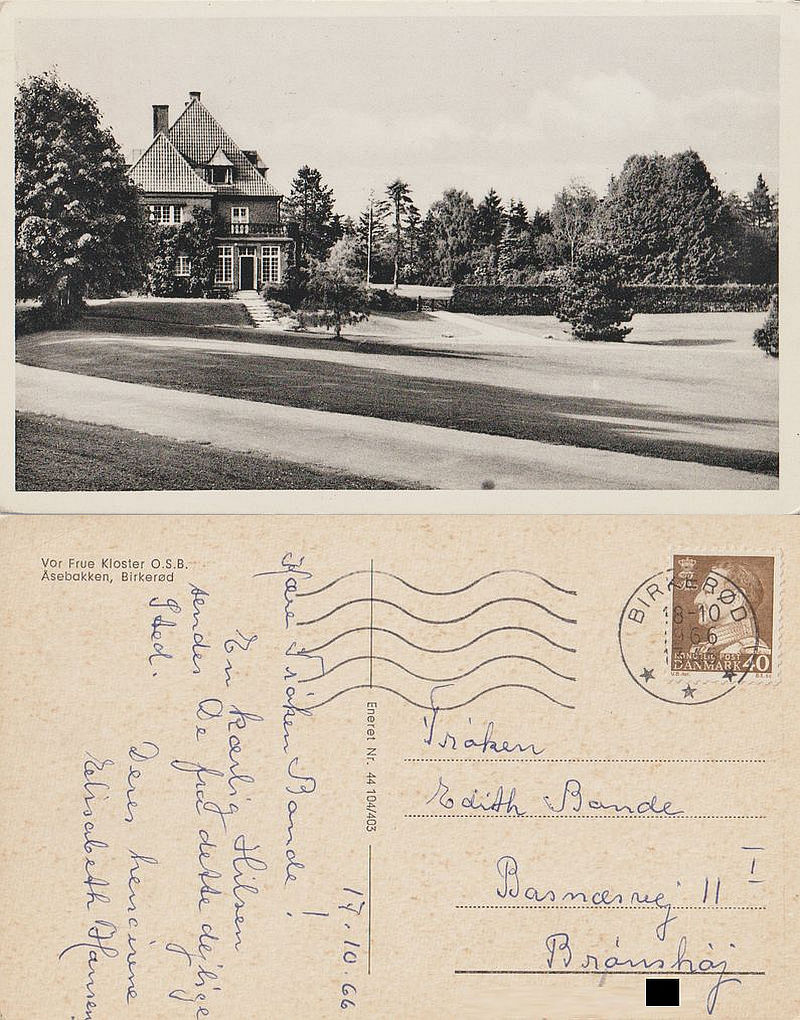 Vor Frue Kloster O.S.B.
Åsebakken, Birkerød
17.10.66
Kære Frøken Bande!
En kærlig Hilsen
sendes De fra dette dejlige
Sted.
Deres hengivne
Elisabeth Hansen
Eneret Nr. 44 104/403
BIRKERØD
18-10
1966
KONGELIG POST
DANMARK 40
Frøken
Edith Bande
Basnæsvej 11 I
Brønshøj